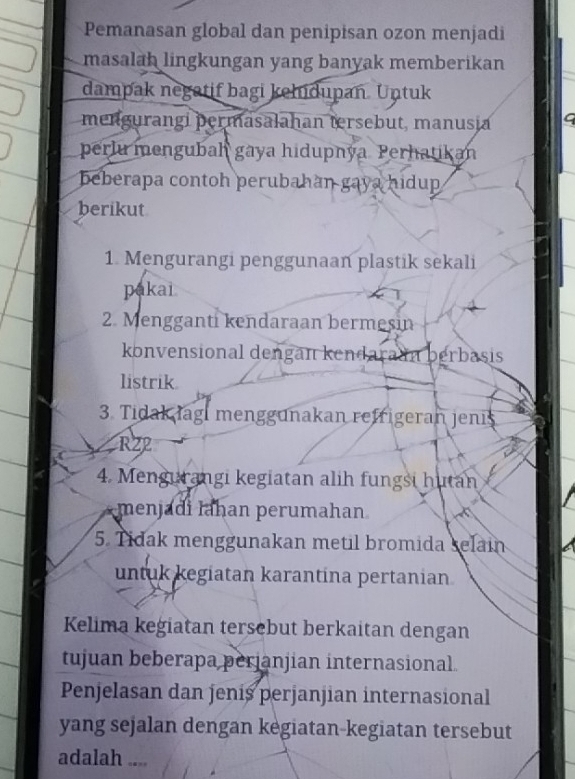 Pemanasan global dan penipisan ozon menjadi
masalah lingkungan yang banyak memberikan
dampak negatif bagi kehidupan. Untuk
mengurangi permasalahan tersebut, manusia
perlu mengubah gaya hidupnya. Perhatikan
beberapa contoh perubahan gaya hidup
berikut.
1. Mengurangi penggunaan plastik sekali
pakai.
2. Mengganti kendaraan bermesin
konvensional dengan kendaraan berbasis
listrik.
3. Tidak lagi menggunakan refrigeran jenis
R22.
4. Mengurangi kegiatan alih fungsi hutan
menjadi lahan perumahan.
5. Tidak menggunakan metil bromida selain
untuk kegiatan karantina pertanian.
Kelima kegiatan tersebut berkaitan dengan
tujuan beberapa perjanjian internasional.
Penjelasan dan jenis perjanjian internasional
yang sejalan dengan kegiatan-kegiatan tersebut
adalah ....